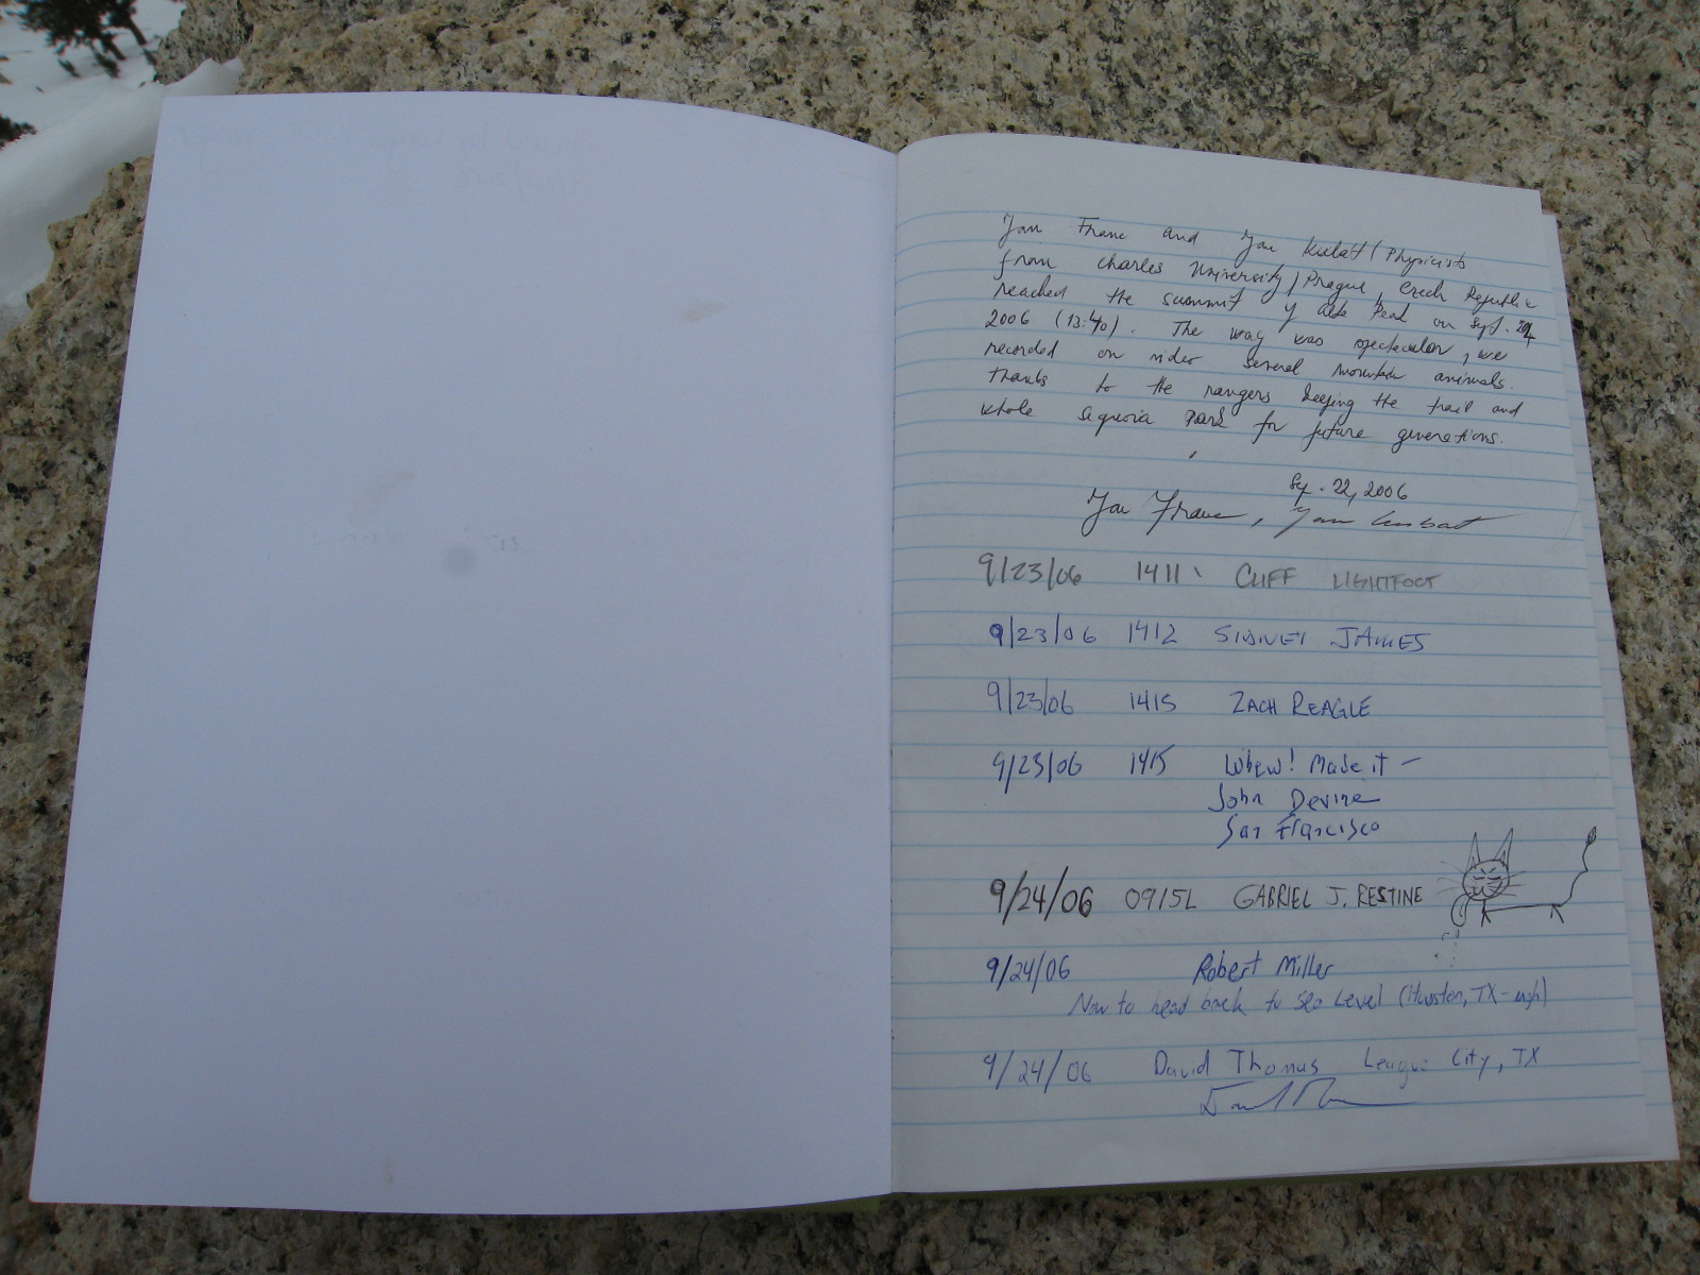 Jan Franc and Jan Kubát (Physicists
from Charles University, Prague, Czech Republic
reached the summit of Alta Peak on Sept. 22,
2006 (13:40). The way was spectacular, we
recorded on video several mountain animals.
Thanks to the rangers keeping the trail and
whole Sequoia Park for future generations.
Sep. 22, 2006
Jan Franc, Jan Kubát
9/23/06 1411 CLIFF LIGHTFOOT
9/23/06 1412 SIDNEY JAMES
9/23/06 1415 ZACH REAGLE
9/23/06 1415 Whew! Made it –
John Devine
San Francisco
9/24/06 0915L GABRIEL J. RESTINE
9/24/06 Robert Miller
Now to head back to Sea Level (Houston, TX - ugh)
9/24/06 David Thomas League City, TX